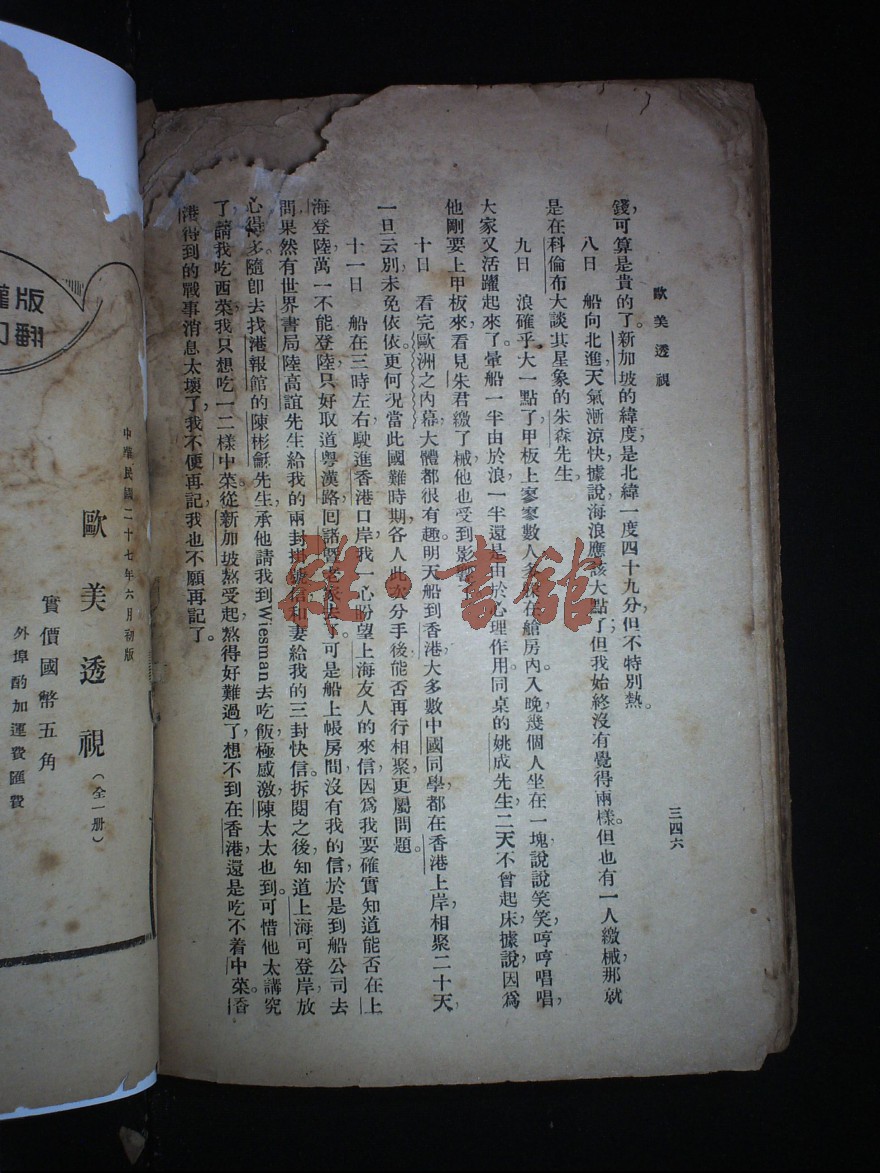 歐美透視
三四六
錢可算是貴的了。新加坡的緯度是北緯一度四十九分，但不特別熱。
八日　船向北進，天氣漸涼快，據說海浪應該大點了，但我始終沒有覺得兩樣。但也有一人繳械，那就
是在科倫布大談其星象的朱森先生。
九日　浪確乎大一點了，甲板上寥寥數人，多躲在艙房內。入晚幾個人坐在一塊，說說笑笑，哼哼唱唱，
大家又活躍起來了。暈船一半由於浪，一半還是由於心理作用。同桌的姚成先生二天不曾起床，據說，因爲
他剛要上甲板來，看見朱君繳了械，他也受到影響。
十日　看完歐洲之內幕，大體都很有趣。明天船到香港，大多數中國同學都在香港上岸，相聚二十天，
一旦云別，未免依依。更何況當此國難時期，各人此次分手後，能否再行相聚，更屬問題。
十一日　船在三時左右，駛進香港口岸，我一心盼望上海友人的來信，因爲我要確實知道能否在上
海登陸，萬一不能登陸，只好取道粵漢路回諸暨老家去了。可是船上帳房間沒有我的信，於是到船公司去
問，果然有世界書局陸高誼先生給我的兩封掛號信和妻給我的三封快信。拆閱之後，知道上海可登岸，放
心得多。隨卽去找港報館的陳彬龢先生，承他請我到Wiesman去吃飯，極感激，陳太太也到。可惜他太講究
了，請我吃西菜，我只想吃一二樣中菜。從新加坡熬受起，熬得好難過了，想不到在香港，還是吃不着中菜。香
港得到的戰事消息太壞了，我不便再記，我也不願再記了。
中華民國二十七年六月初版
歐美透視（全一册）
實價國幣五角
外埠酌加運費匯費
權版
翻
雜·書館